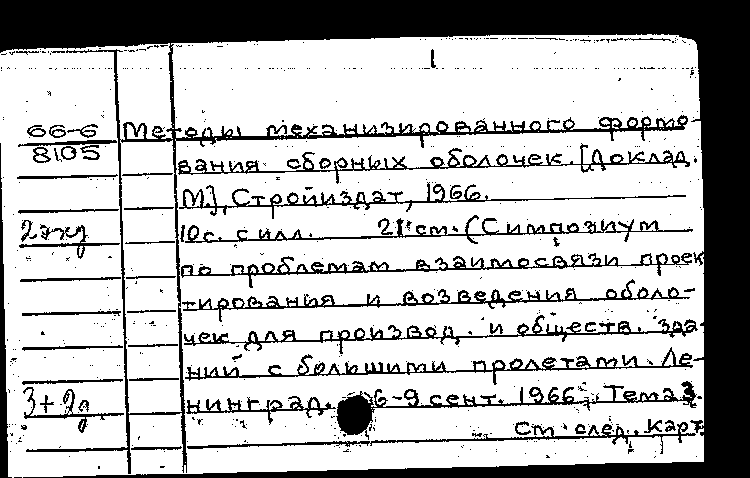 1
66-6 Методы механизированного формо-
8105 вания сборных оболочек. [Доклад.
М], Стройиздат, 1966.
2экз 10с. с илл. 21 см. (Симпозиум
по проблемам взаимосвязи проек
тирования и возведения оболо-
чек для производ. и обществ. зда-
ний с большими пролетами. Ле-
3+2д нинград. 6-9 сент. 1966. Тема 3.
см. след. карт